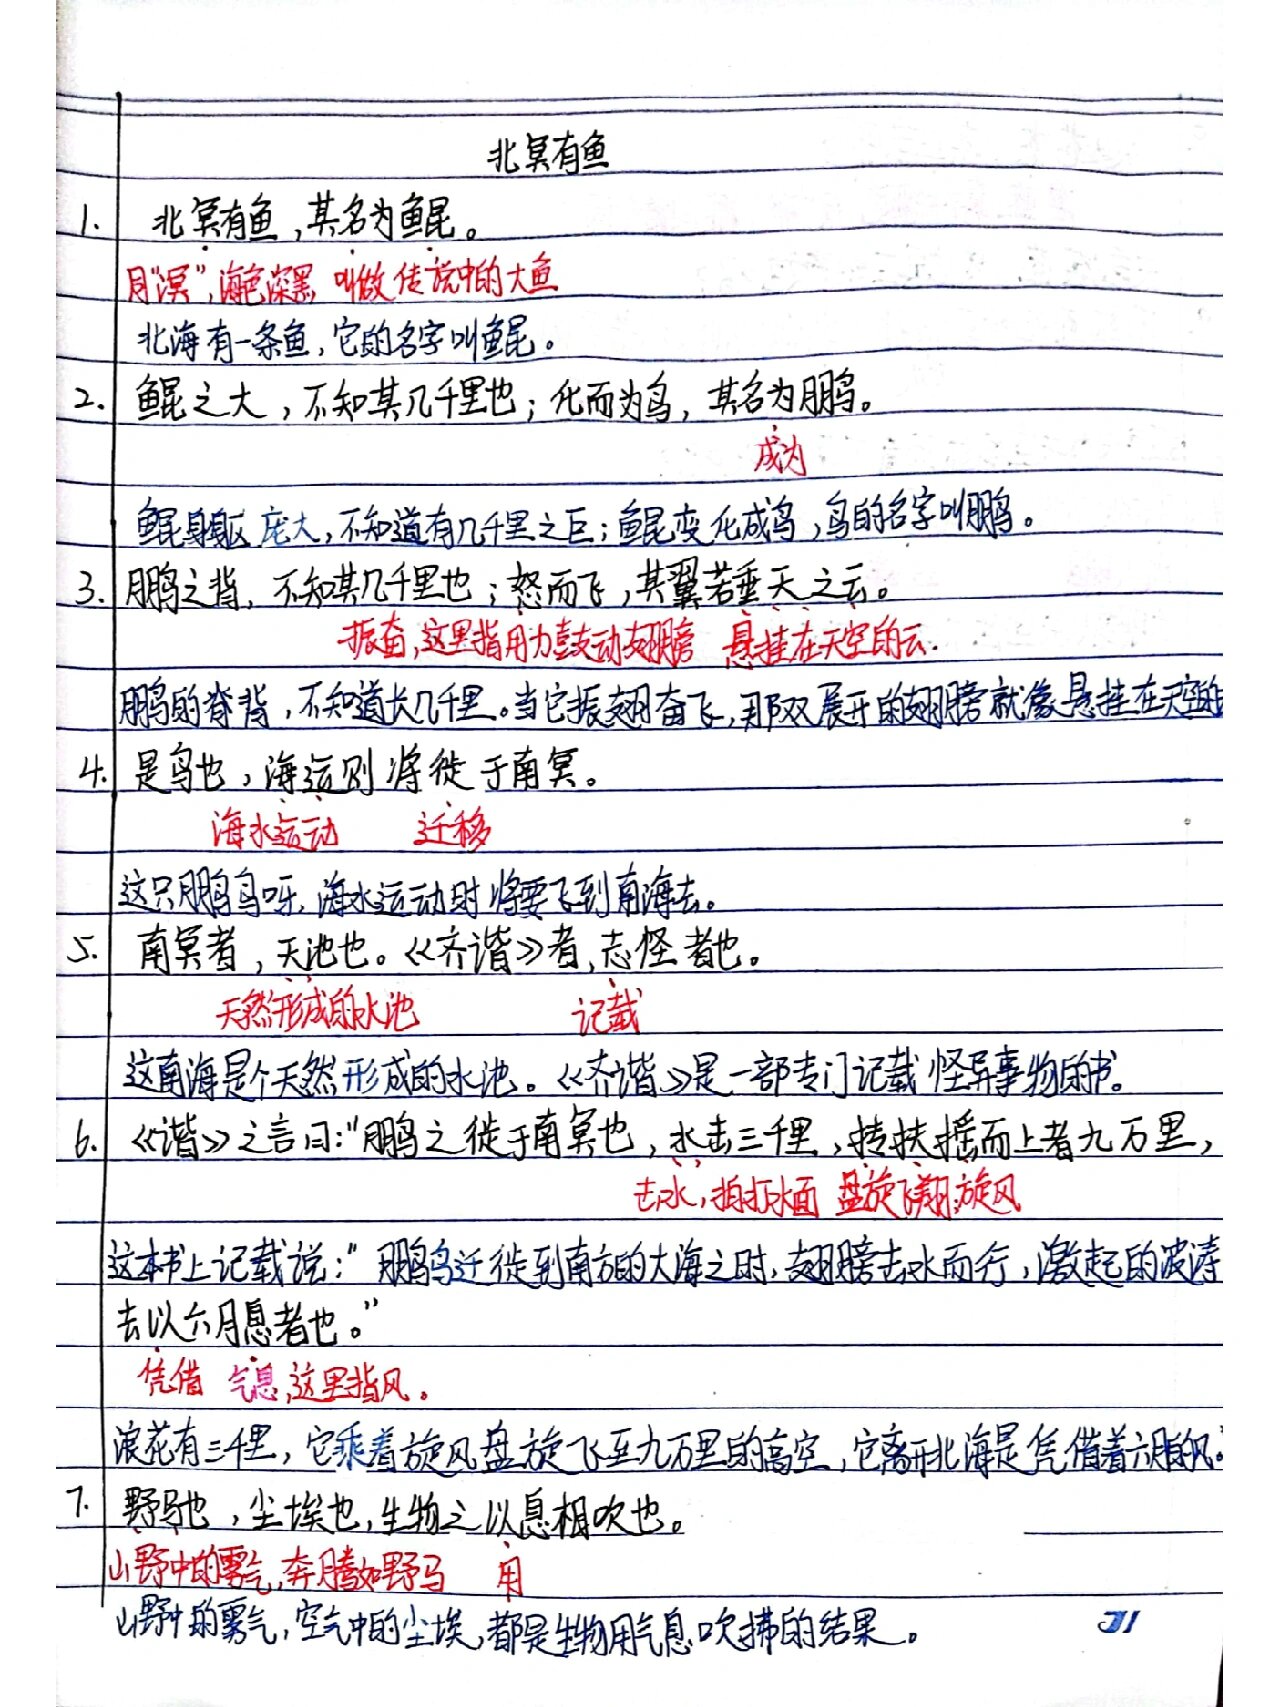 北冥有鱼
1. 北冥有鱼，其名为鲲。
同“溟”，海色深黑 叫做 传说中的大鱼
北海有一条鱼，它的名字叫鲲。
2. 鲲之大，不知其几千里也；化而为鸟，其名为鹏。
成为
鲲身躯庞大，不知道有几千里之巨；鲲变化成鸟，鸟的名字叫鹏。
3. 鹏之背，不知其几千里也；怒而飞，其翼若垂天之云。
振奋，这里指用力鼓动翅膀 悬挂在天空的云.
鹏的脊背，不知道长几千里。当它振翅奋飞，那双展开的翅膀就像悬挂在天空的
4. 是鸟也，海运则将徙于南冥。
海水运动 迁移
这只鹏鸟呀，海水运动时将要飞到南海去。
5. 南冥者，天池也。《齐谐》者，志怪者也。
天然形成的水池 记载
这南海是个天然形成的水池。《齐谐》是一部专门记载怪异事物的书。
6. 《谐》之言曰：“鹏之徙于南冥也，水击三千里，抟扶摇而上者九万里，
击水，拍打水面 盘旋飞翔 旋风
这本书上记载说：“鹏鸟迁徙到南方的大海之时，翅膀击水而行，激起的波涛
去以六月息者也。”
凭借 气息，这里指风。
浪花有三千里，它乘着旋风盘旋飞至九万里的高空，它离开北海是凭借着六月的风。”
7. 野马也，尘埃也，生物之以息相吹也。
山野中的雾气，奔腾如野马 用
山野中的雾气，空气中的尘埃，都是生物用气息吹拂的结果。